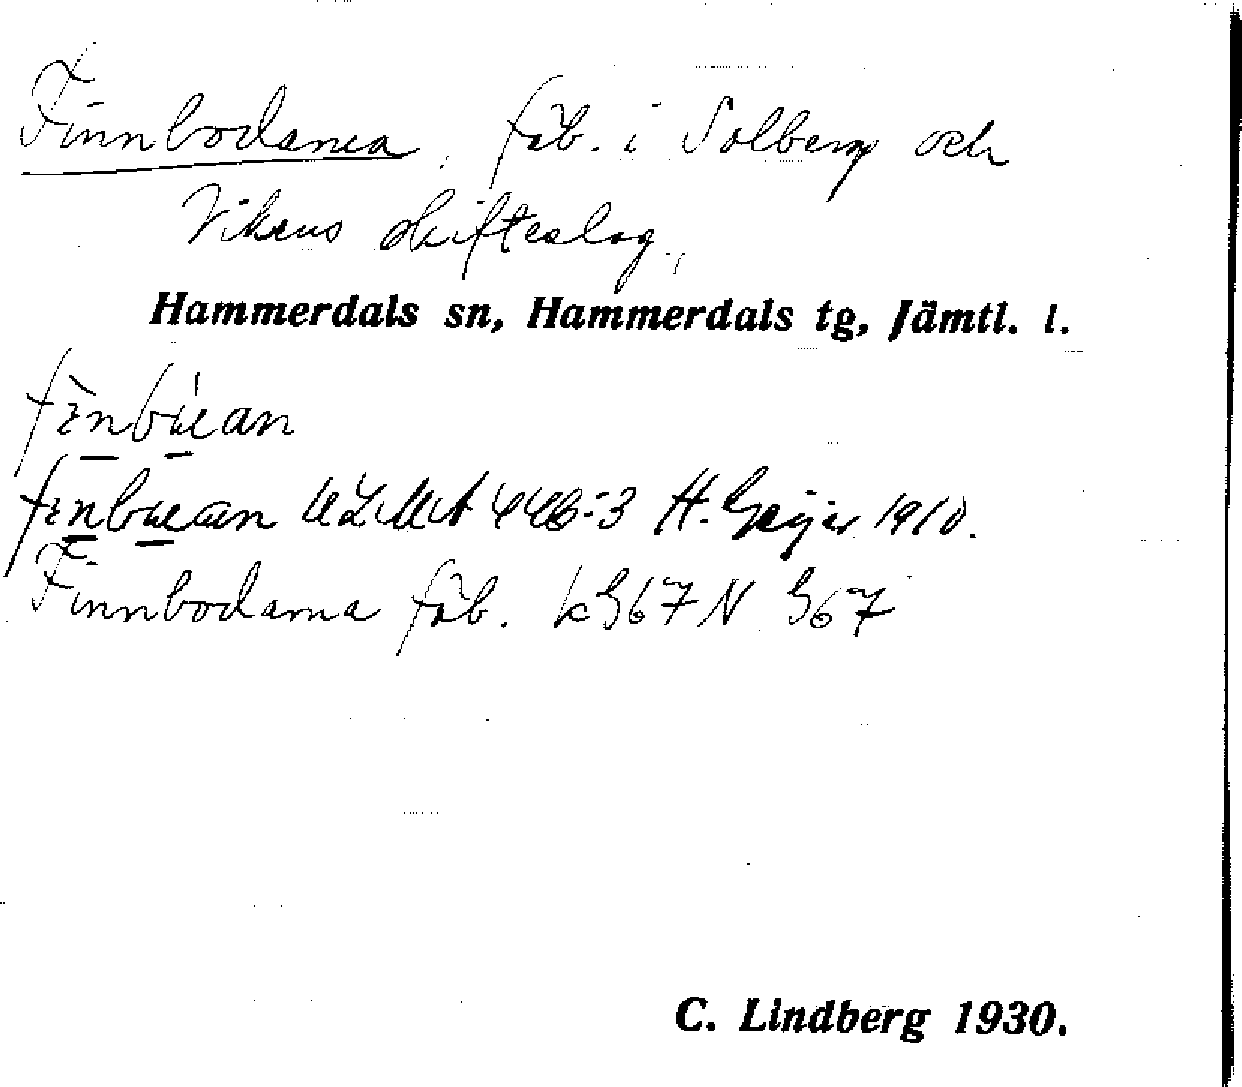 Finnbodarna, fäb. i Solberg och
Vikens skifteslag,
Hammerdals sn, Hammerdals tg, Jämtl. l.
H. Geijer 1910.
Finnbodarna fäb. k 967 N 967
C. Lindberg 1930.